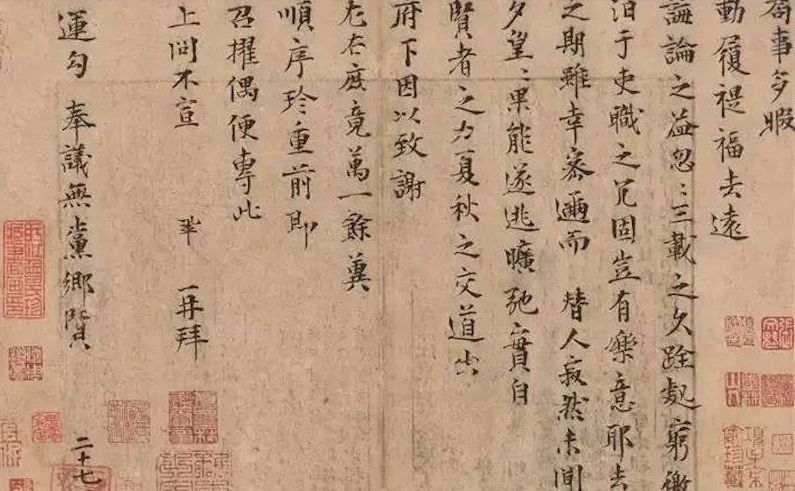 局事多暇
動履禔福去遠
誨論之益忽〻三載之久跧處窮徼
汩于吏職之冗固豈有樂意耶去
之期雖幸密邇而替人寂然未聞
夕望〻果能遂逃曠弛實自
賢者之力夏秋之交道出
府下因以致謝
左右庶竟萬一餘冀
順序珍重前即
召擢偶便專此
上問不宣 鞏 再拜
運勾奉議無黨鄉賢 二十七